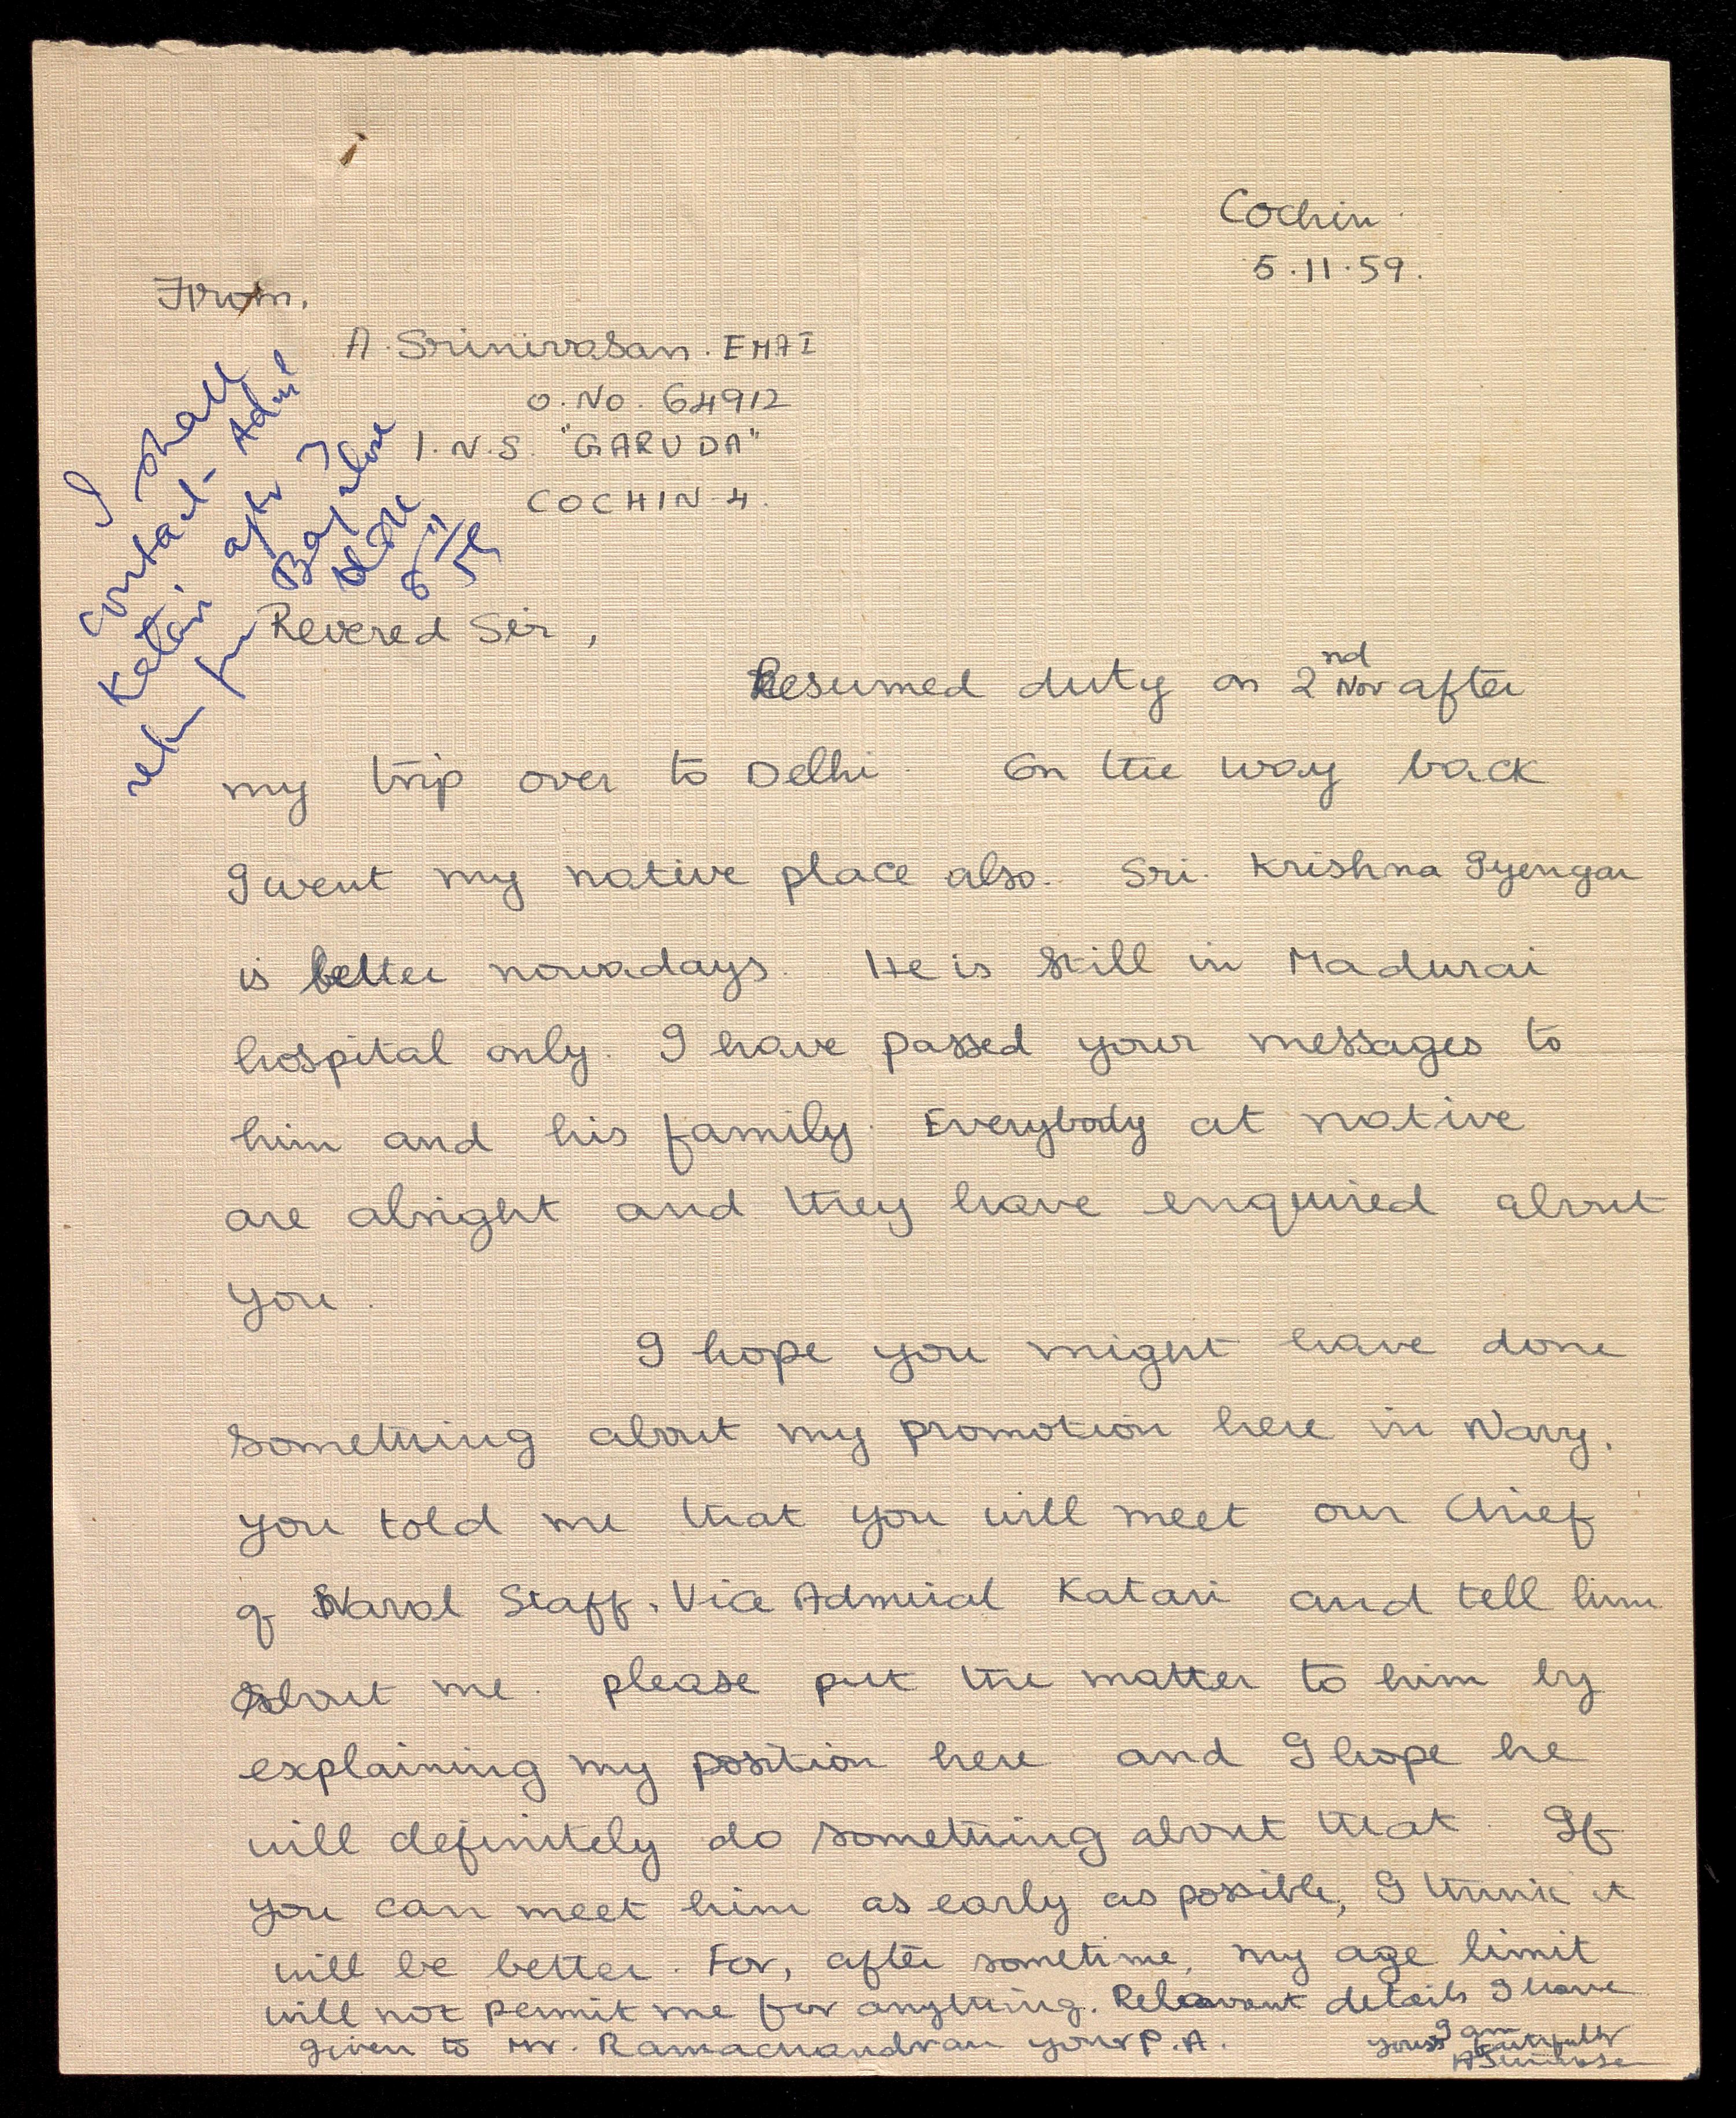 Cochin
5.11.59.
From,
A. Srinivasan. EMAI
O. No. 64912
I.N.S. "GARUDA"
COCHIN-4.
I shall
contact Adml
Katari after I
return from Bangalore
8/11/59
Revered Sir,
Resumed duty on 2nd Nov after
my trip over to Delhi. On the way back
I went my native place also. Sri. Krishna Iyengar
is better nowadays. He is still in Madurai
hospital only. I have passed your messages to
him and his family. Everybody at native
are alright and they have enquired about
you.
I hope you might have done
something about my promotion here in Navy.
you told me that you will meet our Chief
of Naval Staff, Vice Admiral Katari and tell him
about me. please put the matter to him by
explaining my position here and I hope he
will definitely do something about that. If
you can meet him as early as possible, I think it
will be better. For, after sometime, my age limit
will not permit me for anything. Relavant details I have
given to Mr. Ramachandran your P.A.
I am
yours faithfully
ASrinivasan